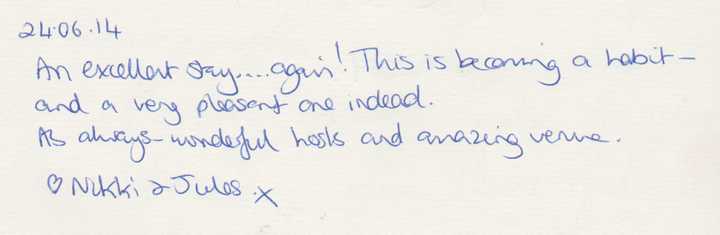 24.06.14
An excellent stay....again! This is becoming a habit -
and a very pleasant one indead.
As always - wonderful hosts and amazing venue.
♡ Nikki & Jules x